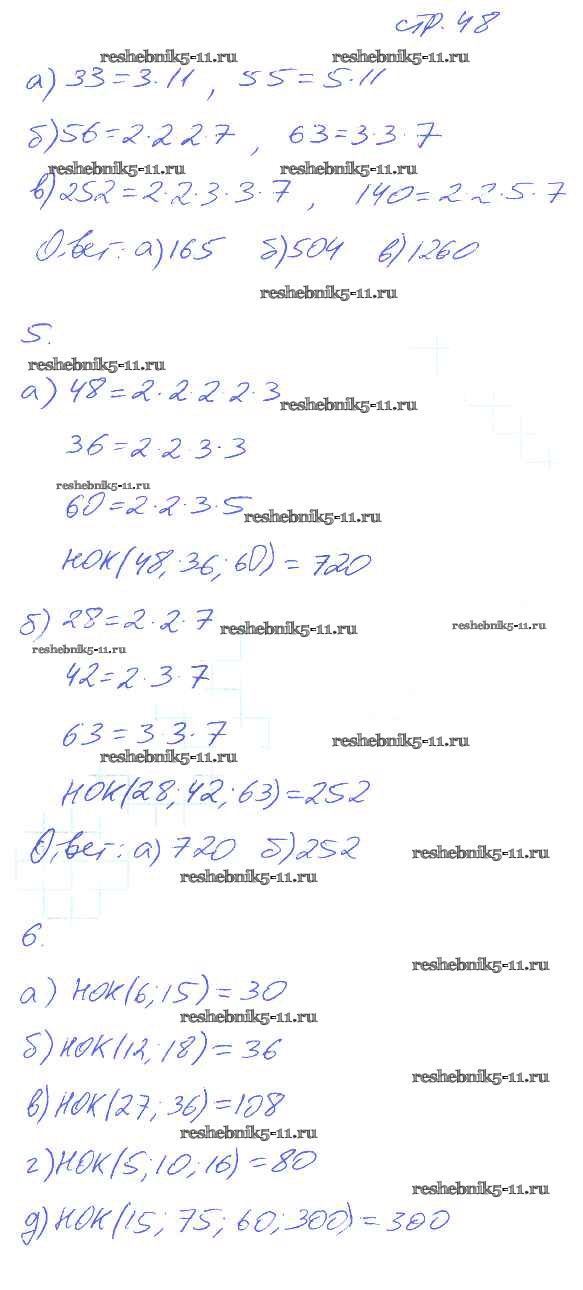 стр. 48
reshebnik5-11.ru reshebnik5-11.ru
а) 33=3·11, 55=5·11
б) 56=2·2 2·7, 63=3·3·7
reshebnik5-11.ru reshebnik5-11.ru
в) 252=2·2·3·3·7, 140=2·2·5·7
Ответ: а) 165 б) 504 в) 1260
reshebnik5-11.ru
5.
reshebnik5-11.ru
а) 48=2·2·2 2·3
reshebnik5-11.ru
36=2·2·3·3
reshebnik5-11.ru
60=2·2·3·5
reshebnik5-11.ru
НОК(48; 36; 60) = 720
б) 28=2·2·7
reshebnik5-11.ru reshebnik5-11.ru
reshebnik5-11.ru
42=2·3·7
63=3·3·7
reshebnik5-11.ru
reshebnik5-11.ru
НОК(28; 42; 63)=252
Ответ: а) 720 б) 252
reshebnik5-11.ru
reshebnik5-11.ru
6.
reshebnik5-11.ru
а) НОК(6; 15) = 30
reshebnik5-11.ru
б) НОК(12; 18) = 36
reshebnik5-11.ru
в) НОК(27; 36)=108
reshebnik5-11.ru
г) НОК(5; 10; 16) = 80
reshebnik5-11.ru
д) НОК(15; 75; 60; 300) = 300